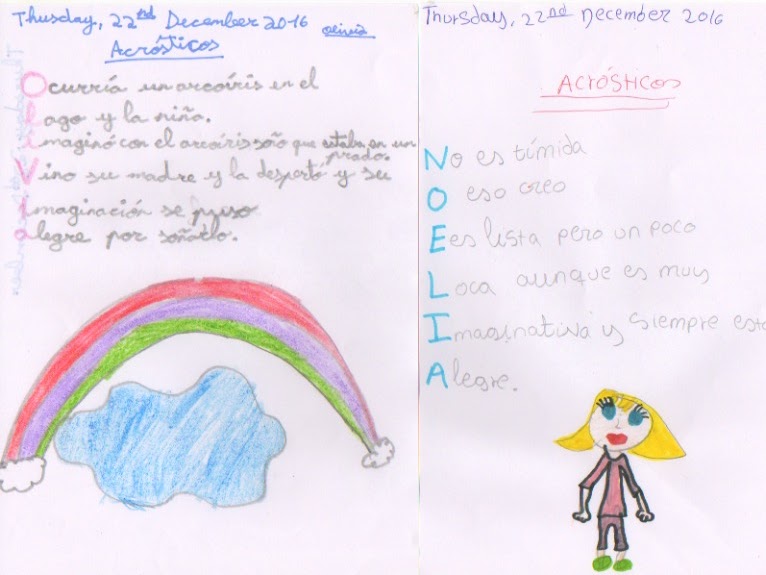 Thusday, 22nd December 2016 olivia
Acrósticos
Ocurría un arcoíris en el
lago y la niña.
imaginó con el arcoíris soño que estaba en un
prado.
Vino su madre y la despertó y su
imaginación se puso
alegre por soñarlo.
Thursday, 22nd December 2016
Acrósticos
No es tímida
O eso creo
Ees lista pero un poco
Loca aunque es muy
Imaginativa y siempre está
Alegre.